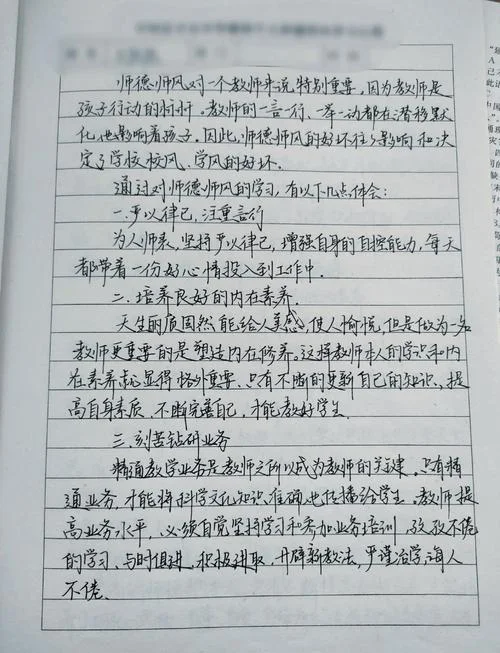 师德师风对一个教师来说特别重要,因为教师是
孩子行动的标杆。教师的一言一行、一举一动都在潜移默
化地影响着孩子。因此,师德师风的好坏往往影响和决
定了学校校风、学风的好坏.
通过对师德师风的学习,有以下几点体会:
一.严以律已,注重言行
为人师表,坚持严以律已,增强自身的自控能力,每天
都带着一份好心情投入到工作中.
二.培养良好的内在素养.
天生的质固然能给人美感,使人愉悦,但是做为一名
教师更重要的是塑造内在修养。这样教师本人的学识和内
在素养就显得格外重要.只有不断的更新自己的知识,提
高自身素质、不断完善自己,才能教好学生.
三.刻苦钻研业务
精通教学业务是教师之所以成为教师的关键.只有精
通业务,才能将科学文化知识准确地传播给学生。教师提
高业务水平,必须自觉坚持学习和参加业务培训,孜孜不倦
的学习、与时俱进、积极进取、开辟新教法,严谨治学,诲人
不倦.